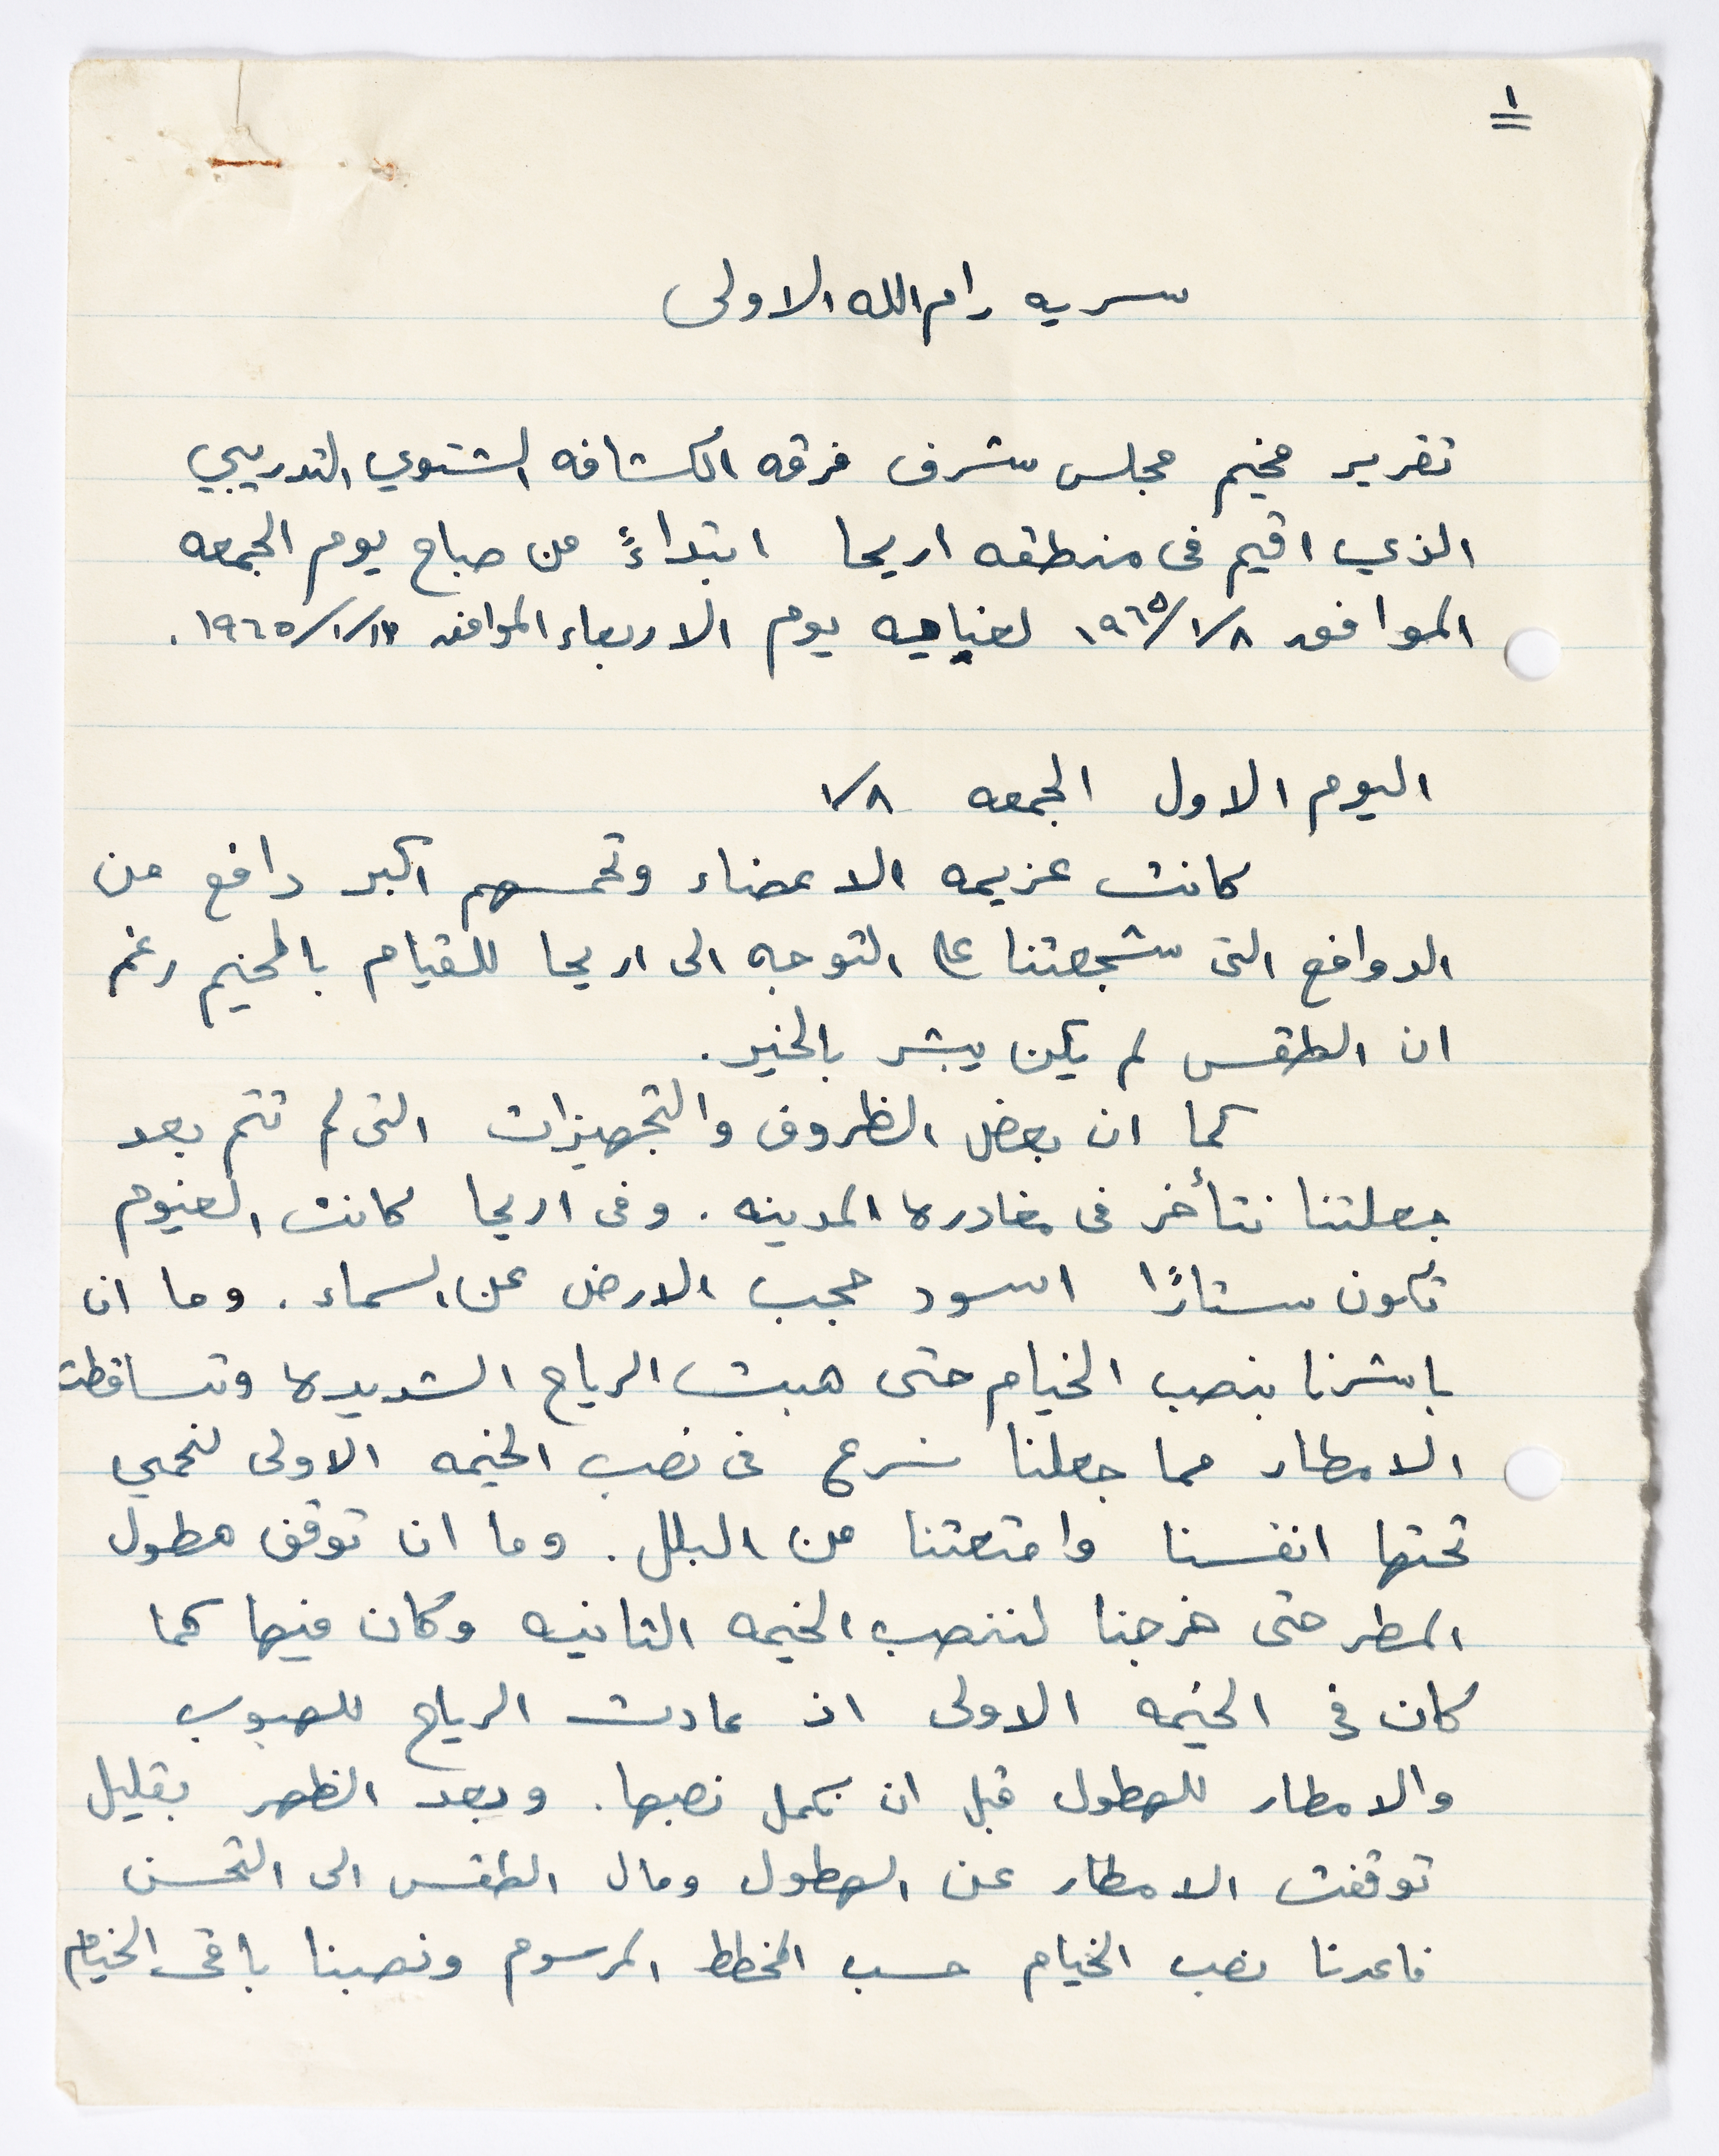 ١
سريه رام الله الاولى
تقرير مخيم مجلس شرف فرقه الكشافه الشتوي التدريبي
الذي اقيم في منطقه اريحا ابتداءً من صباح يوم الجمعه
الموافق ١٩٦٥/١/٨ لغايه يوم الاربعاء الموافق ١٩٦٥/١/١٣.
اليوم الاول الجمعه ١/٨
كانت عزيمه الاعضاء وتحمسهم اكبر دافع من
الدوافع التي شجعتنا على التوجه الى اريحا للقيام بالمخيم رغم
ان الطقس لم يكن يبشر بالخير.
كما ان بعض الظروف والتجهيزات التي لم تتم بعد
جعلتنا نتأخر في مغادره المدينه. وفي اريحا كانت الغيوم
تكون ستارًا اسود حجب الارض عن السماء. وما ان
باشرنا بنصب الخيام حتى هبت الرياح الشديده وتساقطت
الامطار مما جعلنا نسرع في نصب الخيمه الاولى لنحمي
تحتها انفسنا وامتعتنا من البلل. وما ان توقف هطول
المطر حتى خرجنا لننصب الخيمه الثانيه وكان فيها كما
كان في الخيمه الاولى اذ عادت الرياح للهبوب
والامطار للهطول قبل ان نكمل نصبها. وبعد الظهر بقليل
توقفت الامطار عن الهطول ومال الطقس الى التحسن
فاعدنا نصب الخيام حسب المخطط المرسوم ونصبنا باقي الخيام